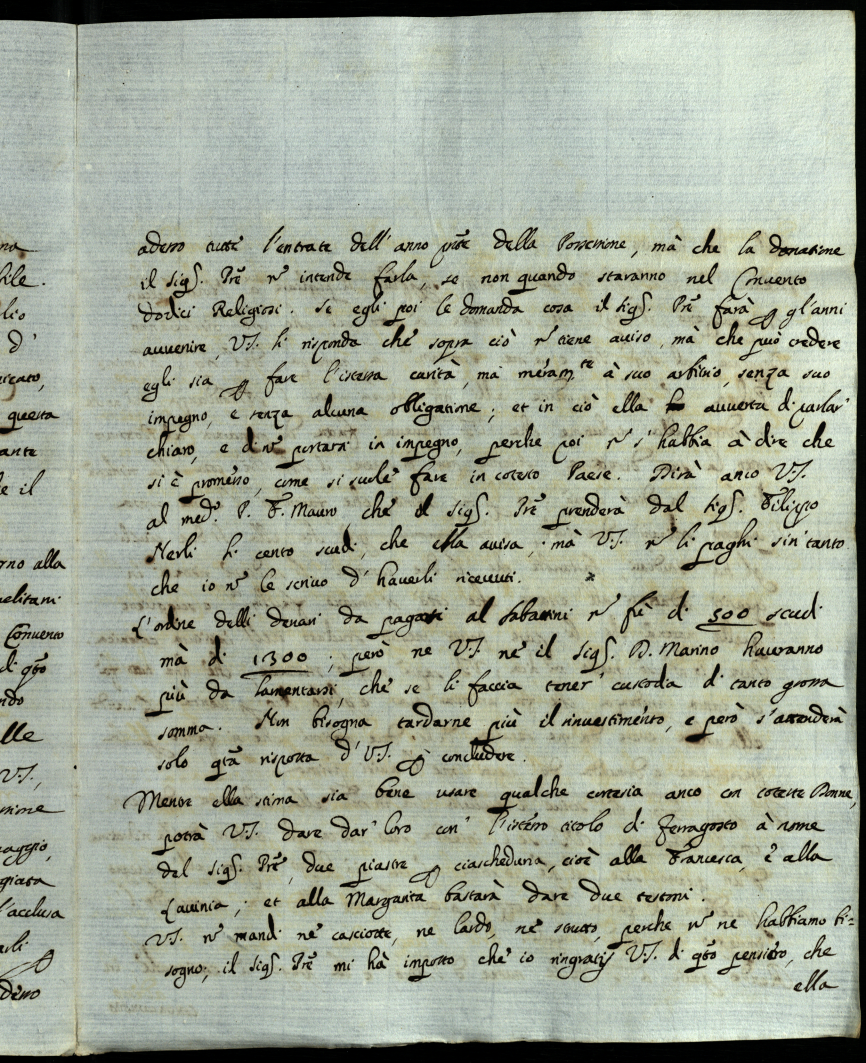 na
bile.
lio
d'
icato,
questa
ante
e il
rno alla
pelitani
Convento
di qto
ndo
lle
V.S.,
ssione
aggio,
giata
l'acclusa
arli
desso
adesso tutte l'entrate dell'anno pnte della Possessione, mà che la donatione
il Sigr. Pre nõ intende farla, se non quando staranno nel Convento
dodici Religiosi. Se egli poi le domanda cosa il sigr. Pre farà p gl'anni
avvenire, V.S. li risponda che sopra ciò nõ tiene aviso, mà che può credere
egli sia p fare l'istessa carità, ma meram.te à suo arbitrio, senza suo
impegno, e senza alcuna obbligatione; et in ciò ella avverta di parlar'
chiaro, e di nõ portarsi in impegno, perche poi nõ s'habbia à dire che
si è promesso, come si suole fare in cotesto Paese. Dirà anco V.S.
al med.o P. F. Mauro che il sigr. Pre prenderà dal sigr. Filippo
Nerli li cento scudi, che ella avisa, mà V.S. nõ li paghi sin'tanto
che io nõ le scrivo d'haverli ricevuti.
L'ordine delli denari da pagarsi al Sabattini nõ fù di 500 scudi
mà di 1300; però ne V.S. ne il Sigr. D. Marino havranno
più da lamentarsi, che se li faccia tener' custodia di tanto grossa
somma. Non bisogna tardarne più il rinvestimento, e però s'attenderà
solo qta risposta d'V.S. p concludere.
Mentre ella stima sia bene usare qualche cortesia anco con coteste Donne,
potrà V.S. dare dar' loro con' l'istesso titolo di ferragosto à nome
del sigr. Pre, due piastre p ciascheduna, cioè alla Francesca, e alla
Lavinia; et alla Margarita bastarà dare due testoni.
V.S. nõ mandi ne casciotte, ne lardo, ne strutto, perche nõ ne habbiamo bi=
sogno; il sigr. Pre mi hà imposto che io ringratij V.S. di qto pensiero, che
ella